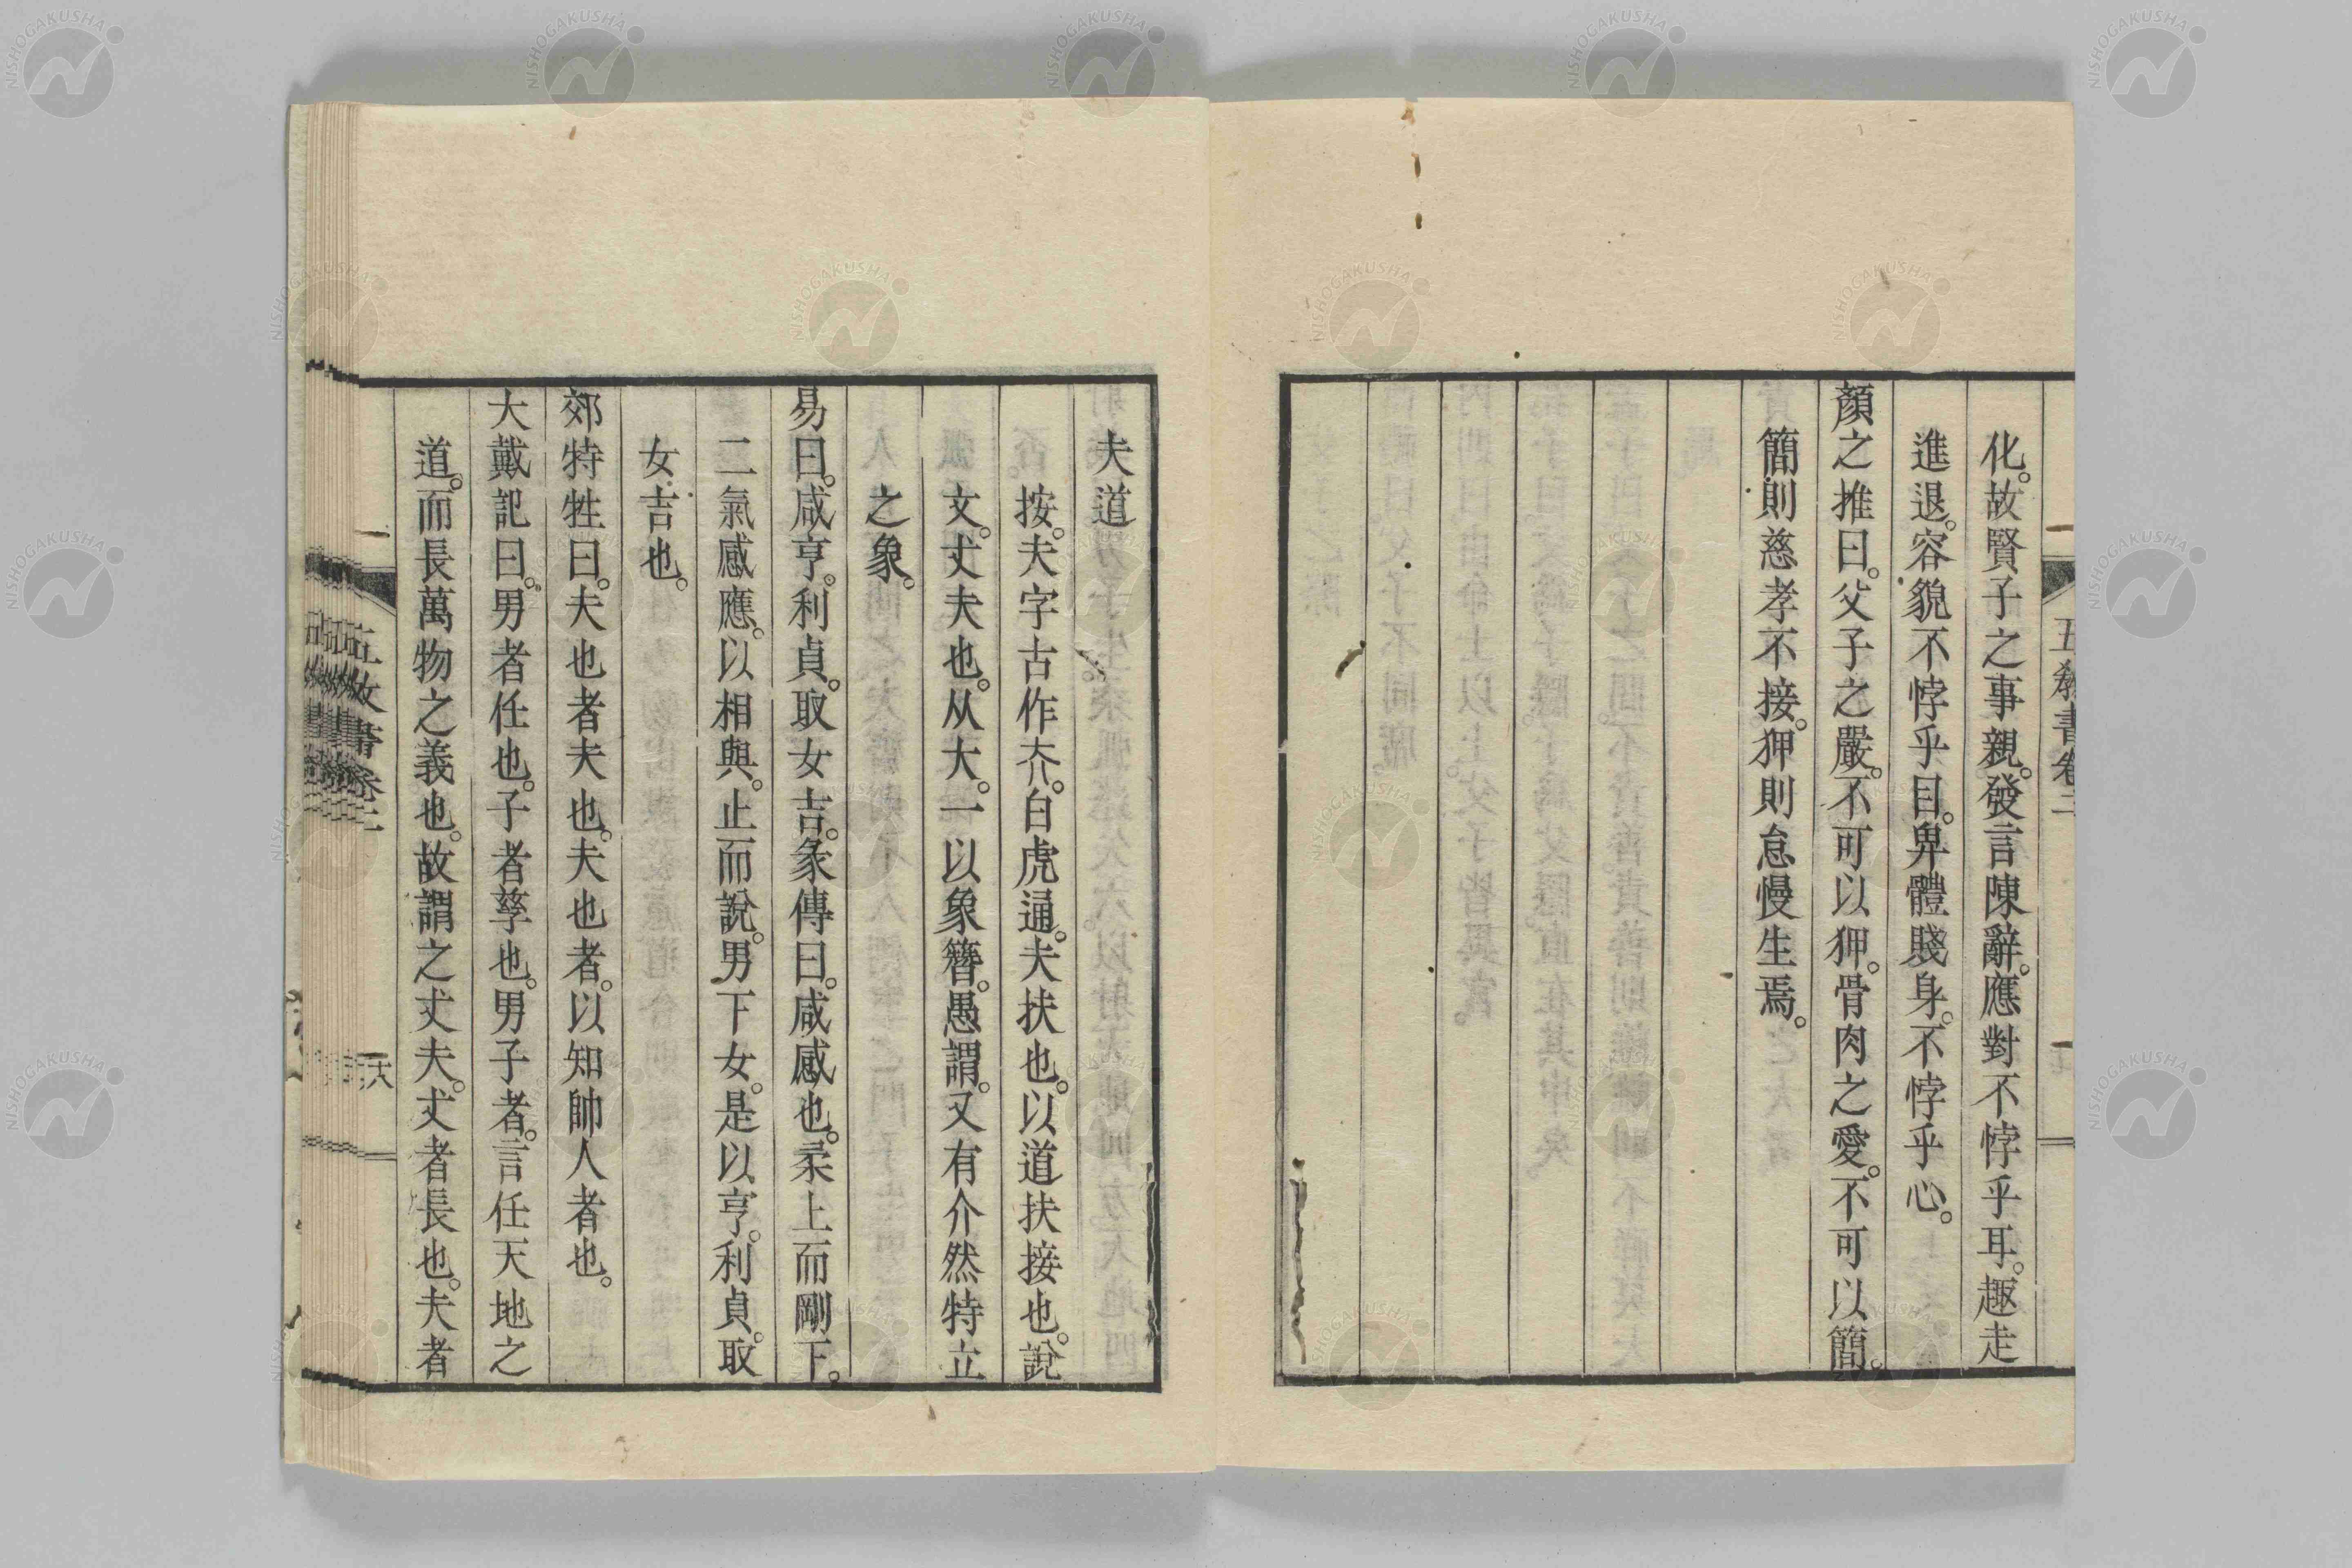 化。故賢子之事親。發言陳辭。應對不悖乎耳。趣走
進退。容貌不悖乎目。卑體賤身。不悖乎心。
顏之推曰。父子之嚴。不可以狎。骨肉之愛。不可以簡。
簡則慈孝不接。狎則怠慢生焉。
五教書卷二
夫道
按。夫字古作夰。白虎通。夫扶也。以道扶接也。說
文。丈夫也。从大。一以象簪。愚謂。又有介然特立
之象。
易曰。咸亨。利貞。取女吉。彖傳曰。咸感也。柔上而剛下。
二氣感應。以相與。止而說。男下女。是以亨。利貞。取
女吉也。
郊特牲曰。夫也者夫也。夫也者。以知帥人者也。
大戴記曰。男者任也。子者孳也。男子者。言任天地之
道。而長萬物之義也。故謂之丈夫。丈者長也。夫者
五教書卷二
十六
NISHOGAKUSHA